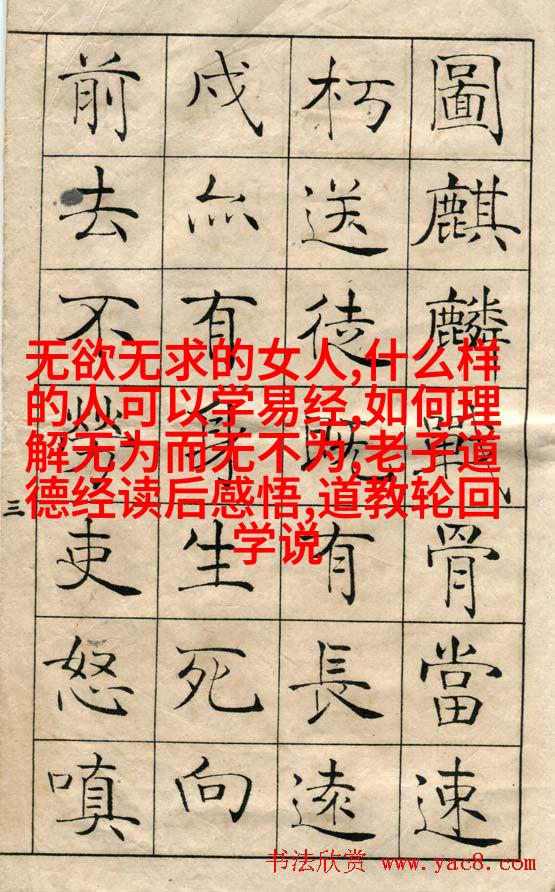 圖麒麟戰骨當速
朽送徒既有長遠
戍亦有身生死向
前去不勞吏怒嗔
三
无欲无求的女人,什么样
的人可以学易经,如何理
解无为而无不为,老子道
德经读后感悟,道教轮回
学说
书法欣赏 www.yac8.com